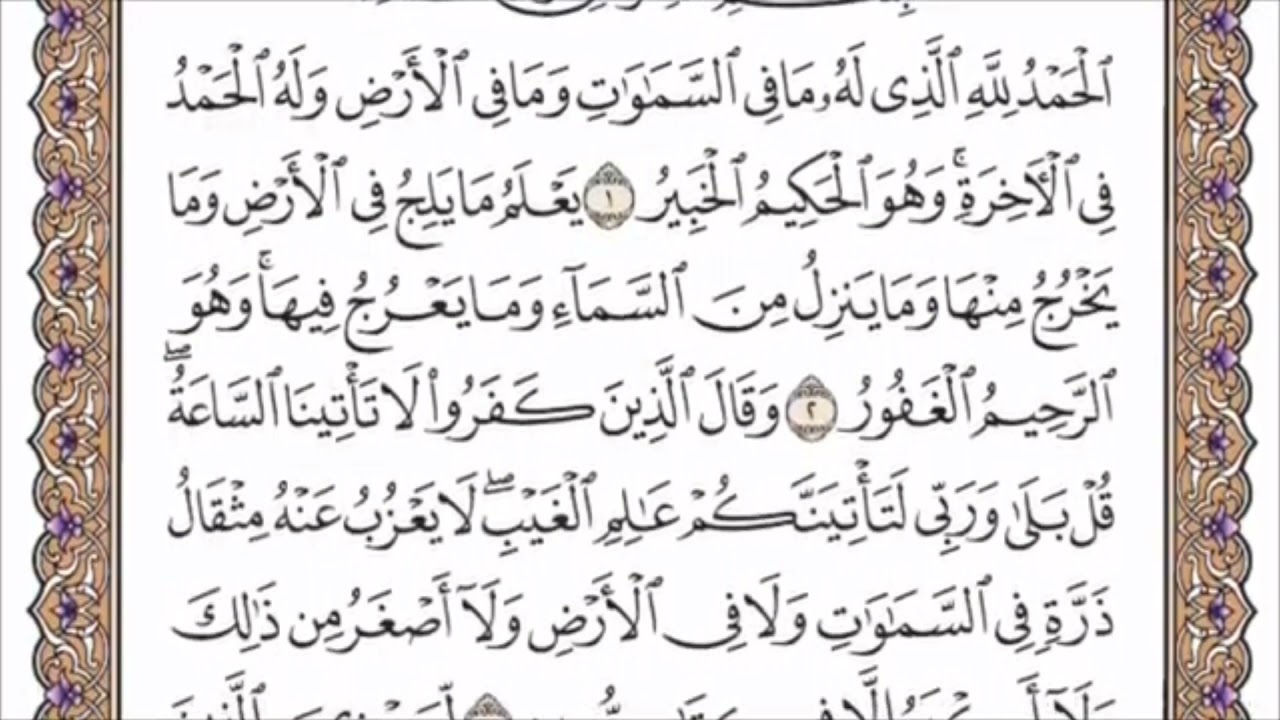 ٱلْحَمْدُ لِلَّهِ ٱلَّذِى لَهُۥ مَا فِى ٱلسَّمَٰوَٰتِ وَمَا فِى ٱلْأَرْضِ وَلَهُ ٱلْحَمْدُ
فِى ٱلْءَاخِرَةِ ۚ وَهُوَ ٱلْحَكِيمُ ٱلْخَبِيرُ ١ يَعْلَمُ مَا يَلِجُ فِى ٱلْأَرْضِ وَمَا
يَخْرُجُ مِنْهَا وَمَا يَنزِلُ مِنَ ٱلسَّمَآءِ وَمَا يَعْرُجُ فِيهَا ۚ وَهُوَ
ٱلرَّحِيمُ ٱلْغَفُورُ ٢ وَقَالَ ٱلَّذِينَ كَفَرُوا۟ لَا تَأْتِينَا ٱلسَّاعَةُ ۖ
قُلْ بَلَىٰ وَرَبِّى لَتَأْتِيَنَّكُمْ عَٰلِمِ ٱلْغَيْبِ ۖ لَا يَعْزُبُ عَنْهُ مِثْقَالُ
ذَرَّةٍ فِى ٱلسَّمَٰوَٰتِ وَلَا فِى ٱلْأَرْضِ وَلَآ أَصْغَرُ مِن ذَٰلِكَ